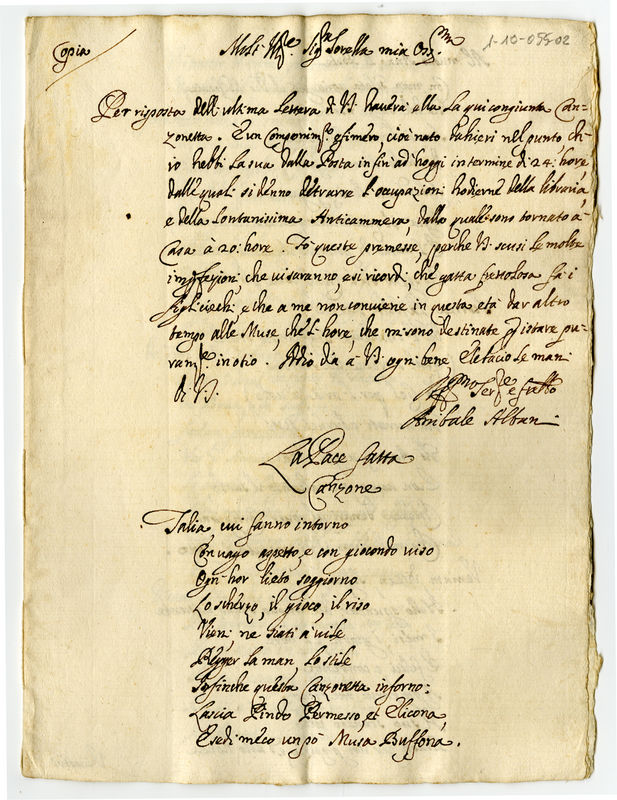 1-10-055-02
Copia
Molt Ill.re Sig.ra Sorella mia Oss.ma
Per risposta dell'ultima lettera di V.S. haverà ella la qui congiunta Can-
zonetta. È un Componim.to efimero, cioè nato dahieri nel punto ch'i-
vo hebbi la sua dalla Posta infin ad hoggi in termine di 24: hore
dalle quali si denno detrarre l'occupazioni hodierne della libraria,
e della lontanissima Anticammera, dalla quale sono tornato à
Casa à 20: hore. Fò queste premesse, perche V.S. scusi le molte
imperfezioni che vi saranno, e si ricordi, che gatta frettolosa fà i
figli ciechi, e che a me non conviene in questa età dar altro
tempo alle Muse, che l'hore, che mi sono destinate p. istare pu-
ram.te in otio. Idio dia à V.S. ogni bene, e le bacio le mani
di V.S.
Aff.mo Ser.re e fratello
Anibale Albani
La Pace fatta
Canzone
Talia, cui fanno intorno
Con vago aspetto, e con giocondo viso
Ogn'hor lieto soggiorno
Lo scherzo, il gioco, il riso
Vien, nè siati à vile
Regger la man, lo stile
Infinche questa Canzonetta inforno:
Lascia Pindo Permesso, et Elicona,
E sedi meco un pò Musa Buffona.